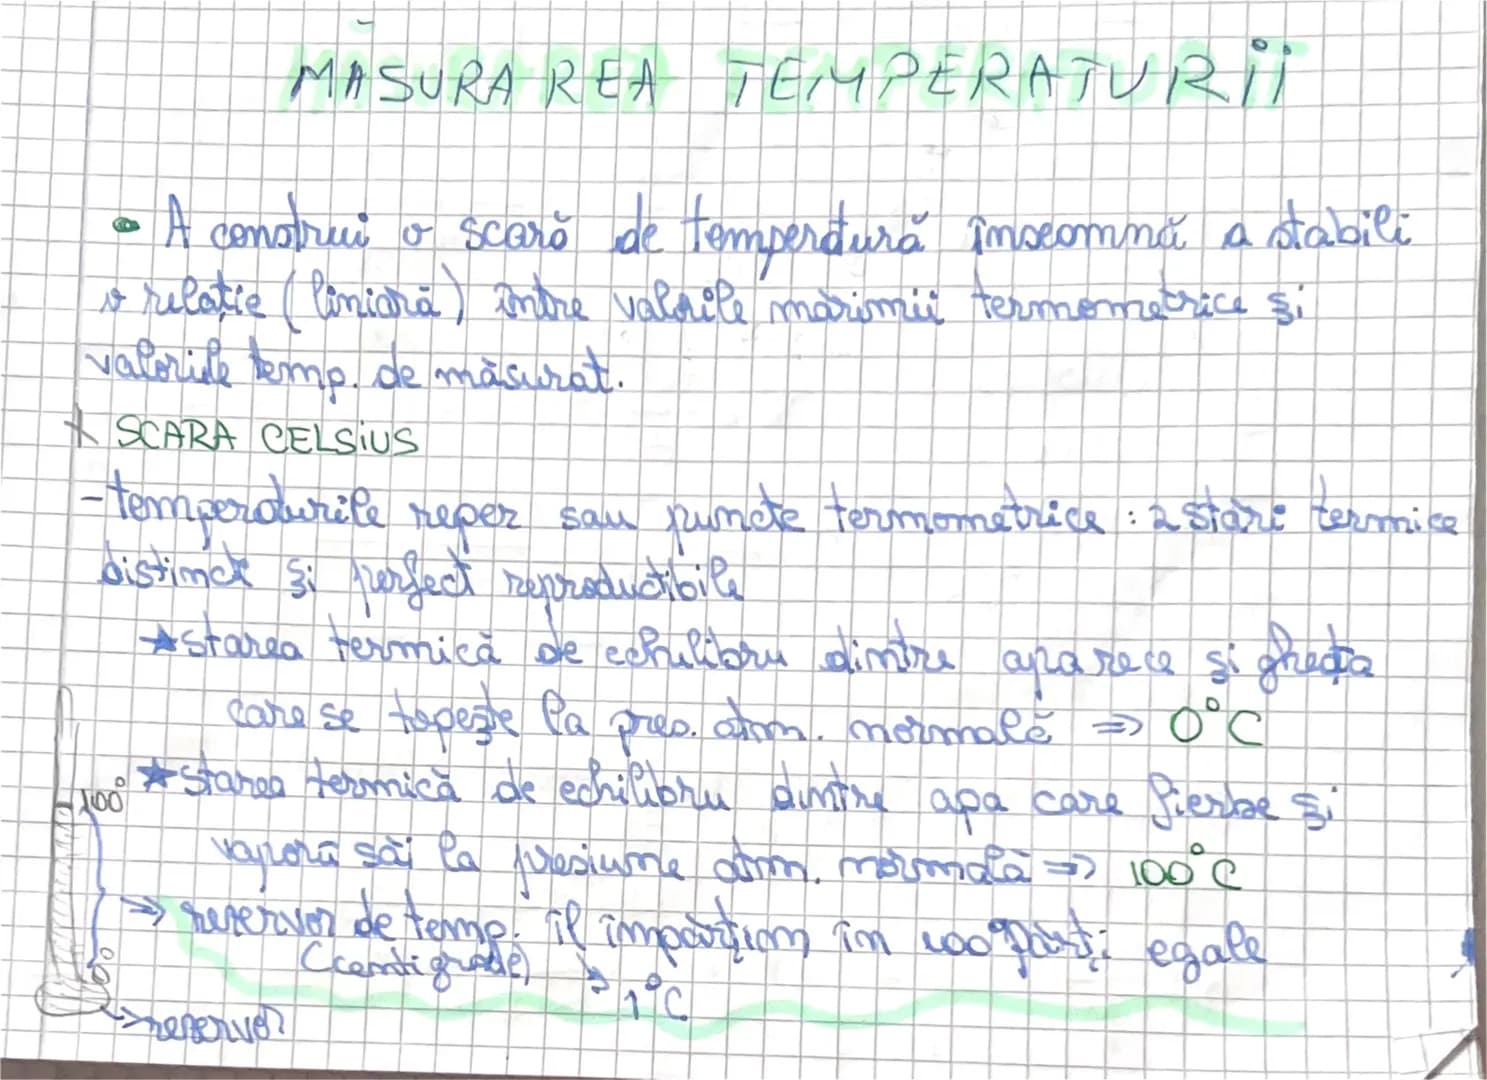 MĂSURAREA TEMPERATURII
• A construi o scară de temperatură înseamnă a stabili
o relație (liniară) între valorile mărimii termometrice și
valorile temp. de măsurat.
SCARA CELSIUS
- temperaturile reper sau puncte termometrice : 2 stări termice
distincte și perfect reproductibile
★ starea termică de echilibru dintre apa rece și gheața
care se topește la pres. atm. normală => 0°C
★ starea termică de echilibru dintre apa care fierbe și
vaporii săi la presiune atm. normală => 100°C
100°
=> rezervor de temp. îl împărțim în 100 părți egale
(centigrade) → 1°C
0°
→ rezervor